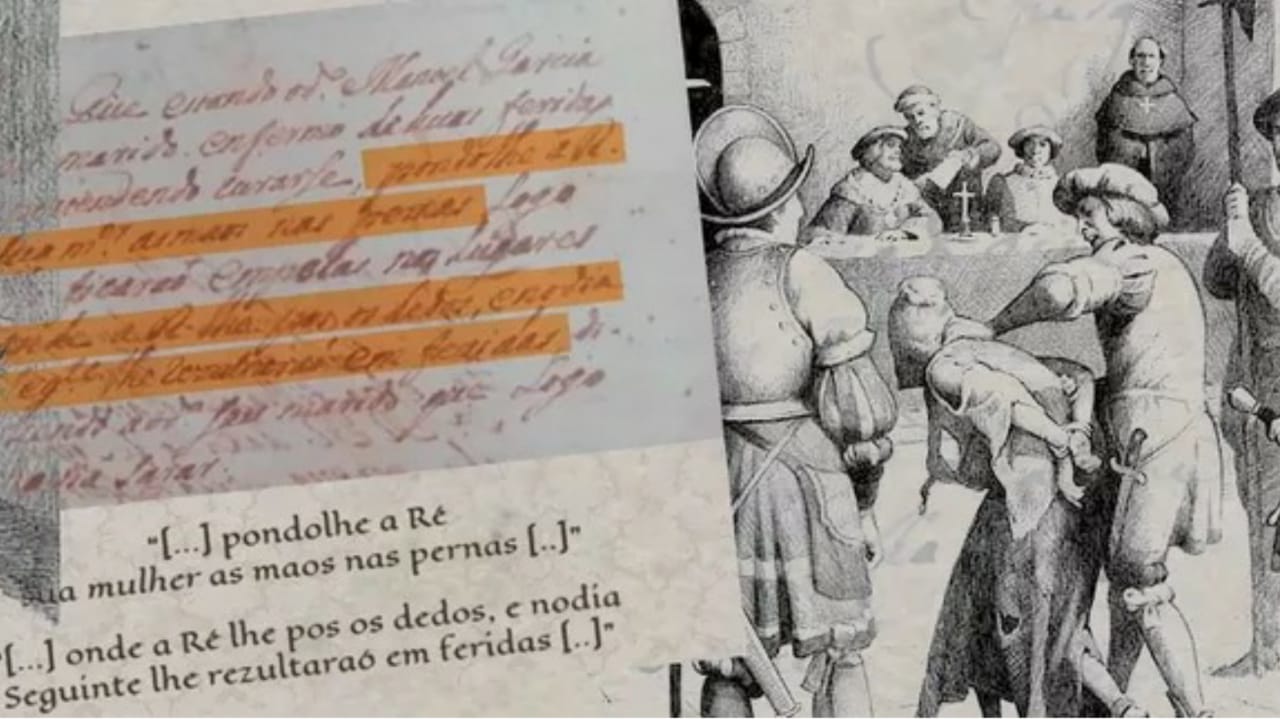 Que estando od.º Manoel Garcia
marido enfermo de huas feridas
curarse, pondolhe a R.
m.er as maos nas pernas, Logo
ficaraõ empolas nos Lugares
a Ré lhe pos os dedos, e nodia
seg.te lhe rezultaraõ em feridas di-
seu marido que Logo
sarar.
"[...] pondolhe a Ré
sua mulher as maos nas pernas [..]"
"[...] onde a Ré lhe pos os dedos, e nodia
Seguinte lhe rezultaraó em feridas [..]"